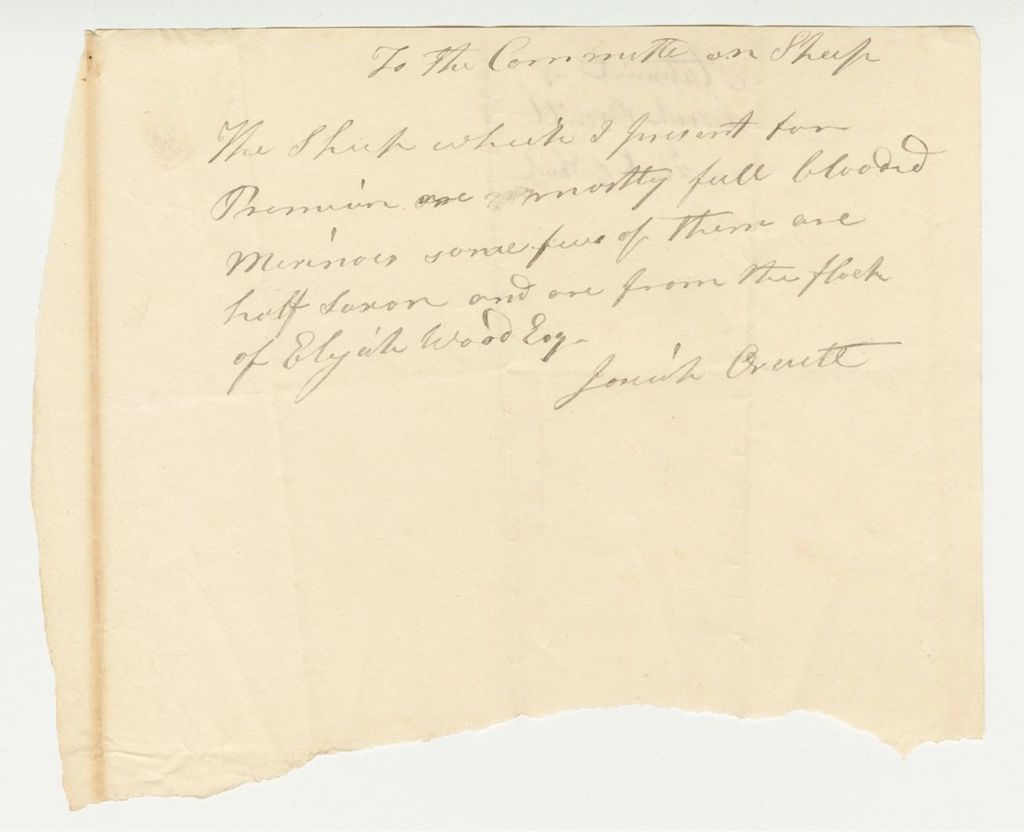 To the Committe on Sheep
The Sheep which I present for
Premium are mostly full blooded
Merinois some few of them are
half Saxon and are from the flock
of Elijah Wood Esq.
Josiah